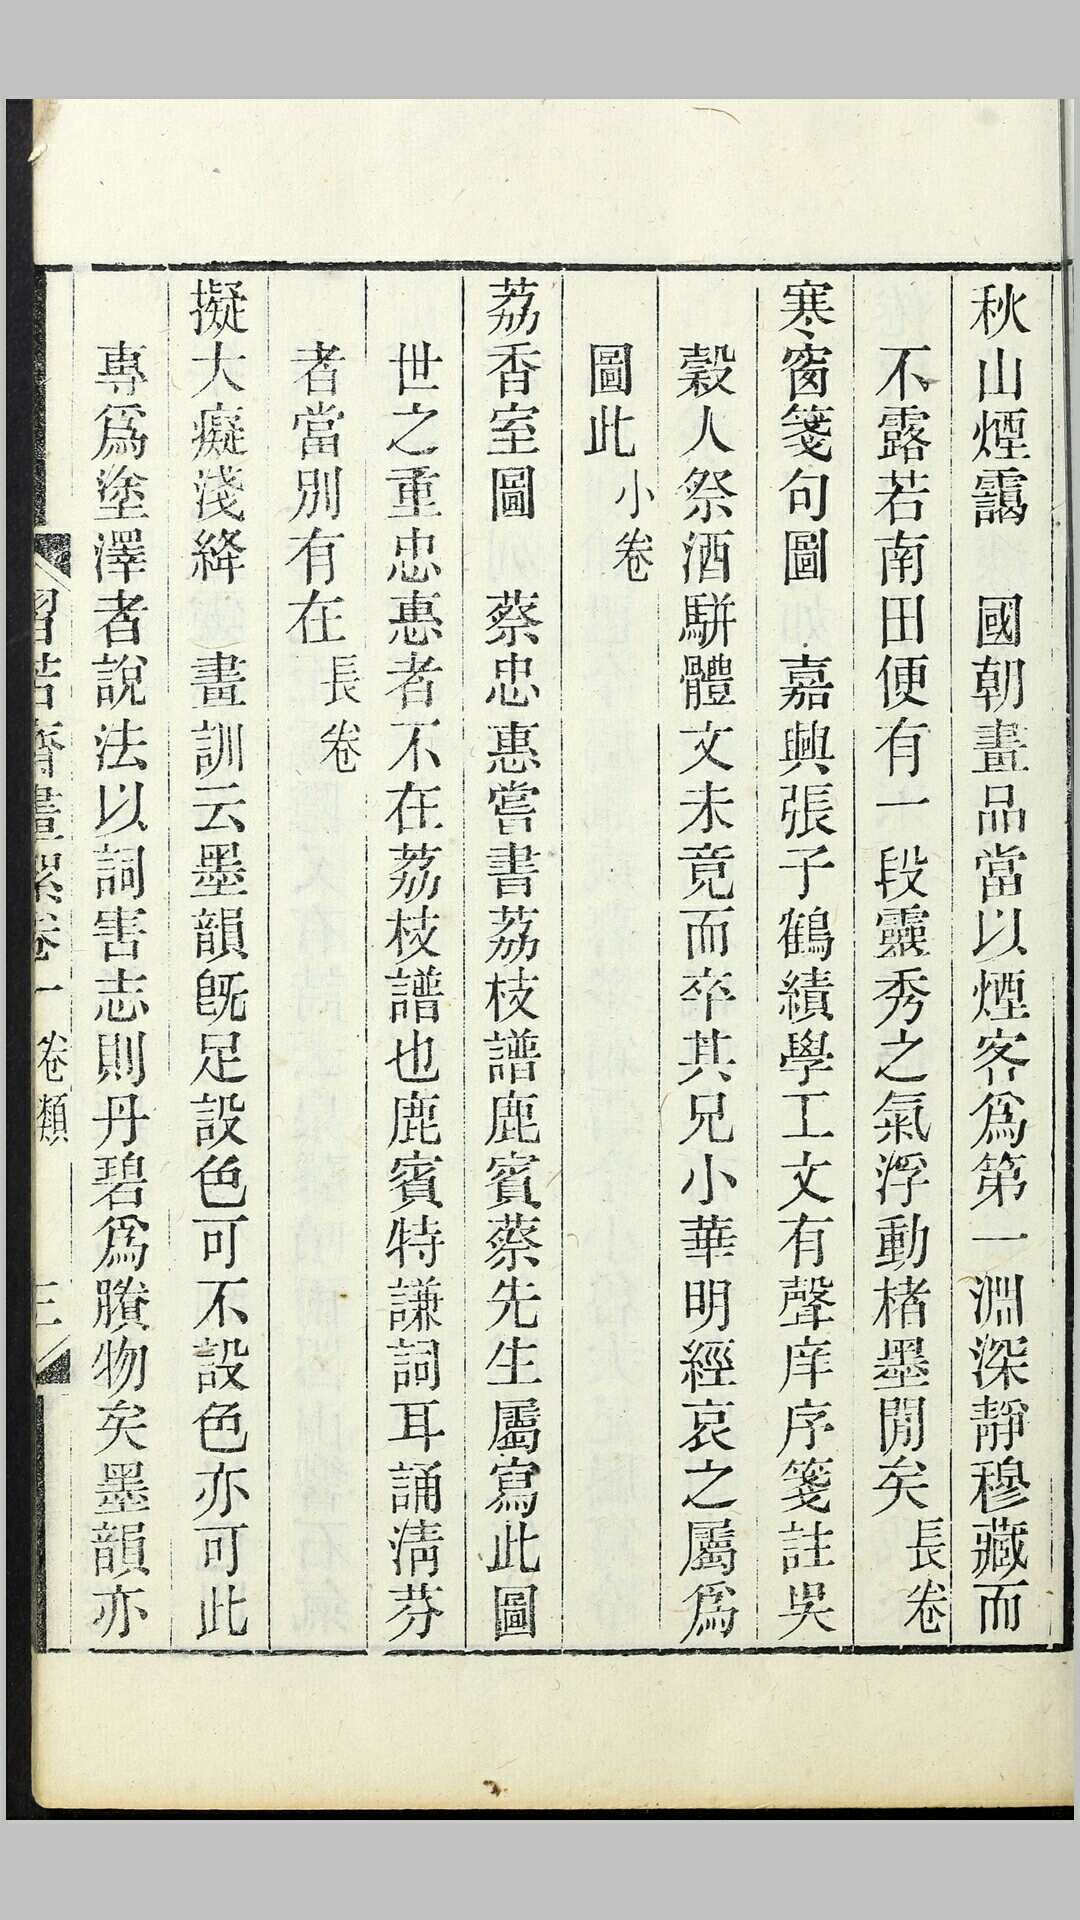 秋山煙靄　國朝畫品當以煙客爲第一淵深靜穆藏而
不露若南田便有一段靈秀之氣浮動楮墨閒矣長卷
寒窗箋句圖　嘉興張子鶴績學工文有聲庠序箋註吳
穀人祭酒駢體文未竟而卒其兄小華明經哀之屬爲
圖此小卷
荔香室圖　蔡忠惠嘗書荔枝譜鹿賓蔡先生屬寫此圖
世之重忠惠者不在荔枝譜也鹿賓特謙詞耳誦淸芬
者當別有在長卷
擬大癡淺絳　畫訓云墨韻旣足設色可不設色亦可此
專爲塗澤者說法以詞害志則丹碧爲賸物矣墨韻亦
習苦齋畫絮卷一　卷類　三